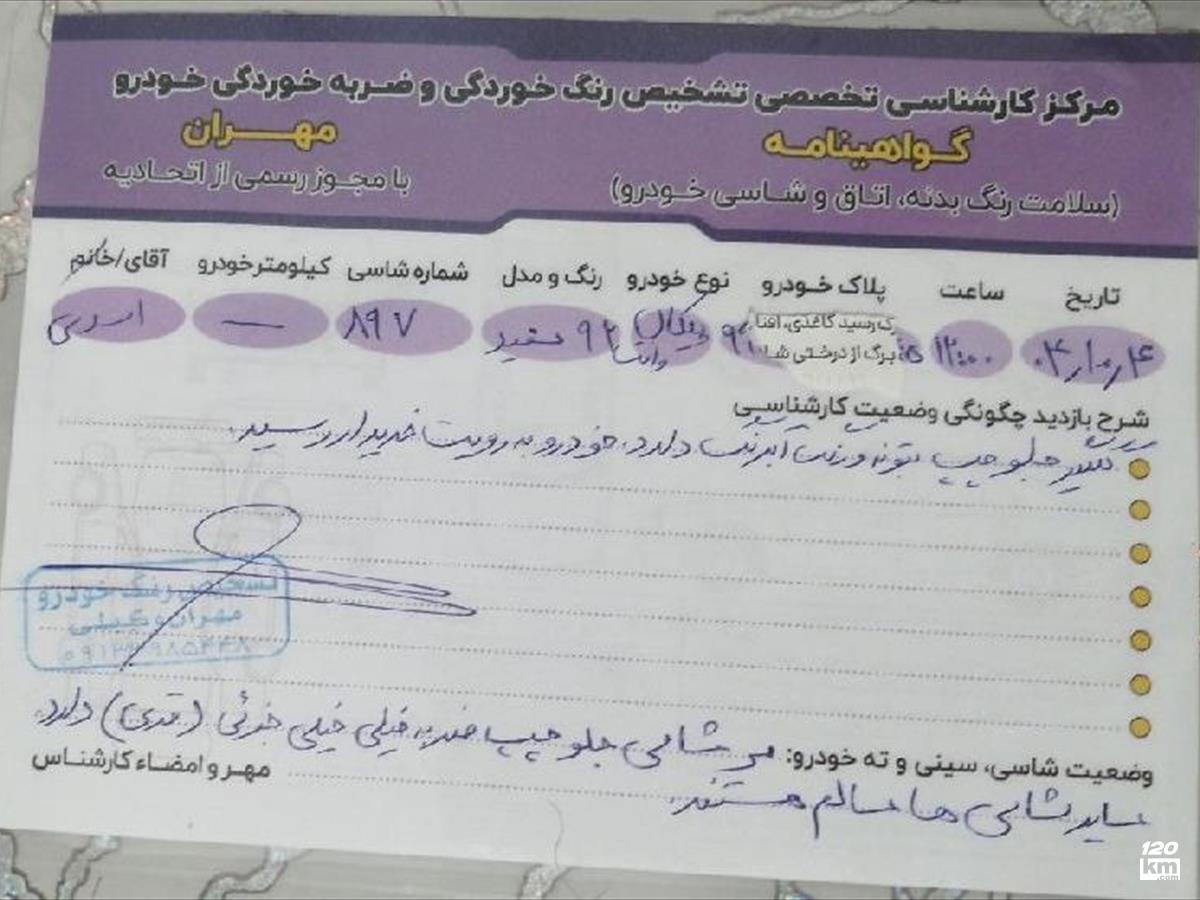 مرکز کارشناسی تخصصی تشخیص رنگ خوردگی و ضربه خوردگی خودرو
گواهینامه
مهران
(سلامت رنگ بدنه، اتاق و شاسی خودرو)
با مجوز رسمی از اتحادیه
تاریخ ساعت پلاک خودرو نوع خودرو رنگ و مدل شماره شاسی کیلومتر خودرو آقای/خانم
۰۴/۱۰/۰۴ ۱۲:۰۰ وانت ۹۲ سفید ۸۹۷ —
رسید کاغذی،
برگ از درختی
شرح بازدید چگونگی وضعیت کارشناسی
گلگیر جلو چپ بتونه و رنگ دارد، خودرو به رویت خریدار رسید.
تشخیص رنگ خودرو
مهران وکیلی
وضعیت شاسی، سینی و ته خودرو: سر شاسی جلو چپ ضربه خیلی خیلی جزئی (قدی) دارد
سایر شاسی ها سالم هستند.
مهر و امضاء کارشناس
120
km
.com